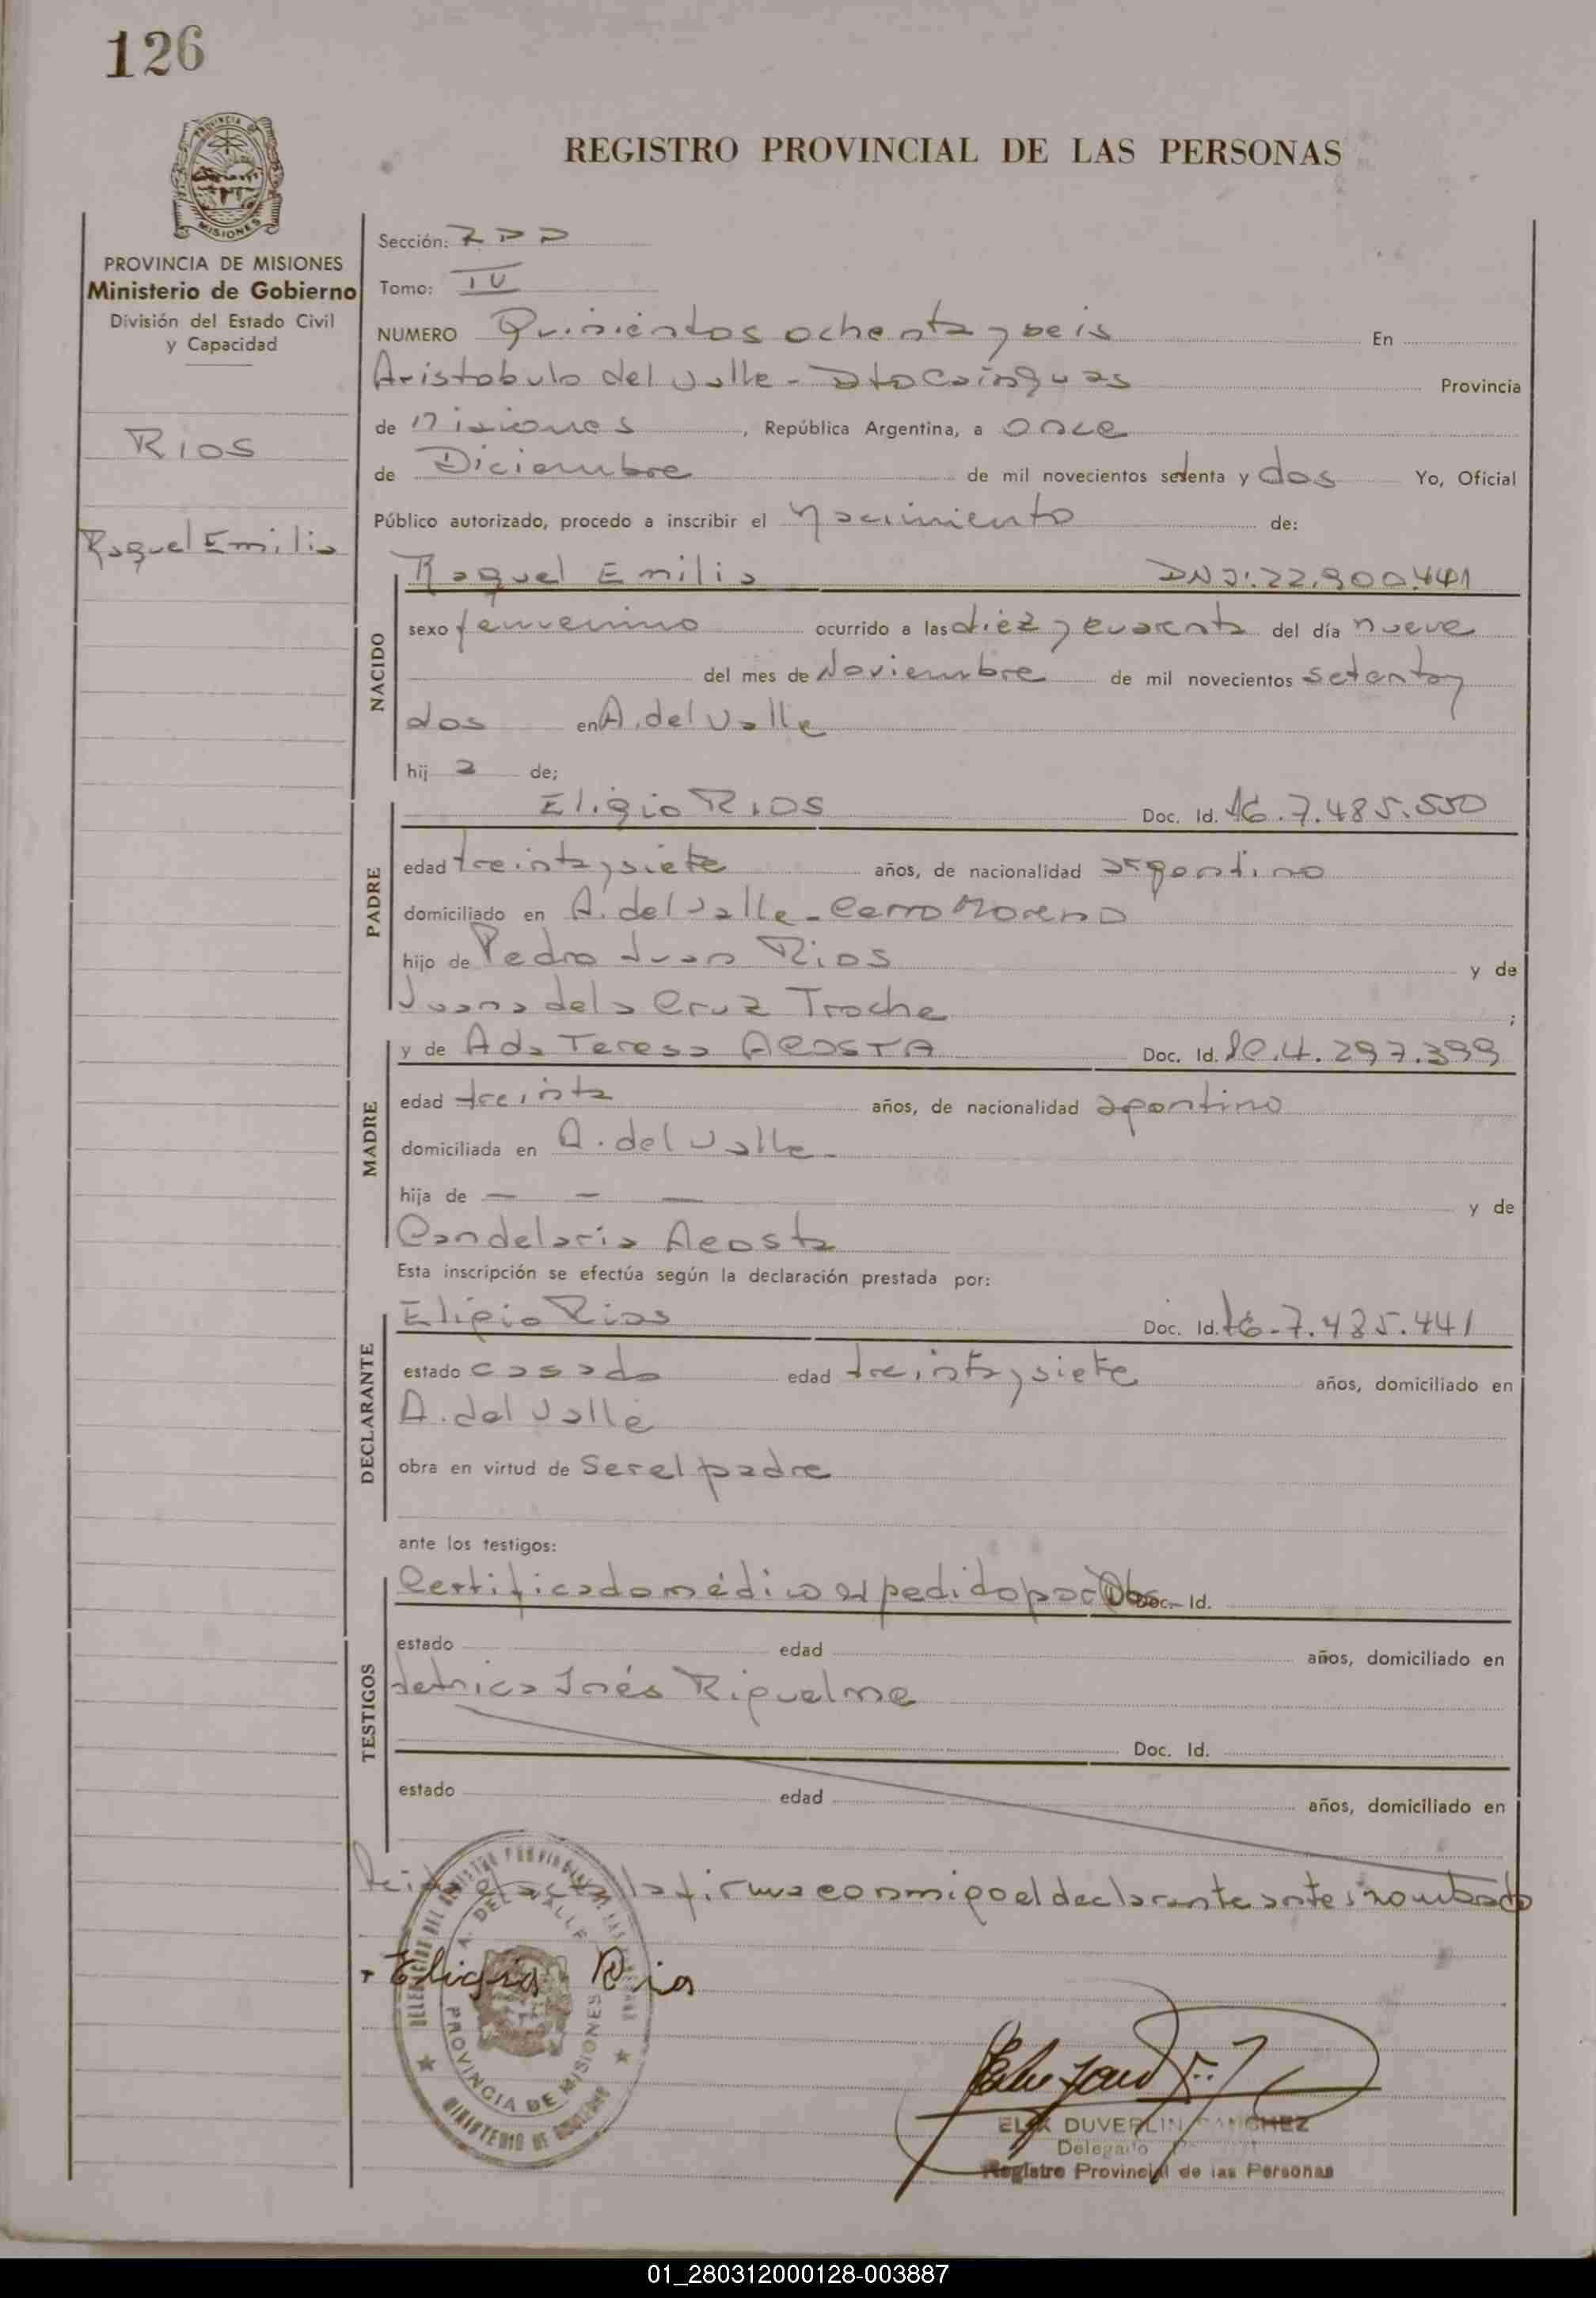 126
REGISTRO PROVINCIAL DE LAS PERSONAS
PROVINCIA
MISIONES
PROVINCIA DE MISIONES
Ministerio de Gobierno
División del Estado Civil
y Capacidad
RIOS
Raquel Emilia
Sección:
Tomo: IV
NUMERO Quinientos ochenta y seis En
Aristobulo del Valle - Dto Cainguas Provincia
de Misiones, República Argentina, a once
de Diciembre de mil novecientos setenta y dos Yo, Oficial
Público autorizado, procedo a inscribir el Nacimiento de:
NACIDO
Raquel Emilia DNI: 22.900.441
sexo femenino ocurrido a las diez y cuarenta del día nueve
del mes de Noviembre de mil novecientos setenta y
dos en A. del Valle
hij a de;
PADRE
Eligio RIOS Doc. Id. 7.485.550
edad treinta y siete años, de nacionalidad argentino
domiciliado en A. del Valle - Cerro Moreno
hijo de Pedro Juan Rios y de
Juana de la Cruz Troche ;
MADRE
y de Ada Teresa ACOSTA Doc. Id. 4.297.399
edad treinta años, de nacionalidad argentina
domiciliada en A. del Valle -
hija de — — — y de
Candelaria Acosta
Esta inscripción se efectúa según la declaración prestada por:
DECLARANTE
Eligio Rios Doc. Id. 7.485.441
estado casado edad treinta y siete años, domiciliado en
A. del Valle
obra en virtud de Ser el padre
ante los testigos:
TESTIGOS
Certificado médico expedido por Obs Doc. Id.
estado edad años, domiciliado en
tetrica Inés Riquelme
Doc. Id.
estado edad años, domiciliado en
la firma conmigo el declarante antes nombrado
Eligio Rios
A. DEL VALLE
PROVINCIA DE MISIONES
MINISTERIO DE GOBIERNO
DUVERLIN SANCHEZ
Delegado
Registro Provincial de las Personas
01_280312000128-003887